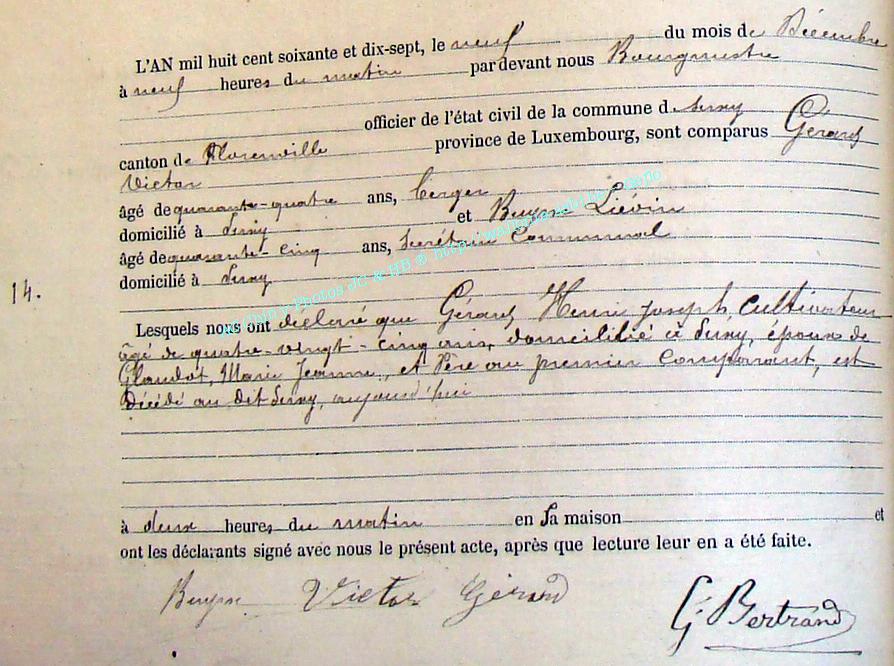 L'AN mil huit cent soixante et dix-sept, le neuf du mois de Décembre
à neuf heures du matin par devant nous Bourgmestre
officier de l'état civil de la commune d Suxy
canton de Florenville province de Luxembourg, sont comparus Gérard
Victor
âgé de quarante-quatre ans, berger
domicilié à Suxy et Liévin
âgé de quarante-cinq ans, Secrétaire Communal
domicilié à Suxy
14.
Lesquels nous ont déclaré que Gérard Henri Joseph, cultivateur
âgé de quatre-vingt-cinq ans, domicilié à Suxy, époux de
Glaudot, Marie Jeanne, et Père au premier Comparant, est
décédé au dit Suxy, aujourd'hui
à deux heures du matin en Sa maison et
ont les déclarants signé avec nous le présent acte, après que lecture leur en a été faite.
Victor Gérard G. Bertrand